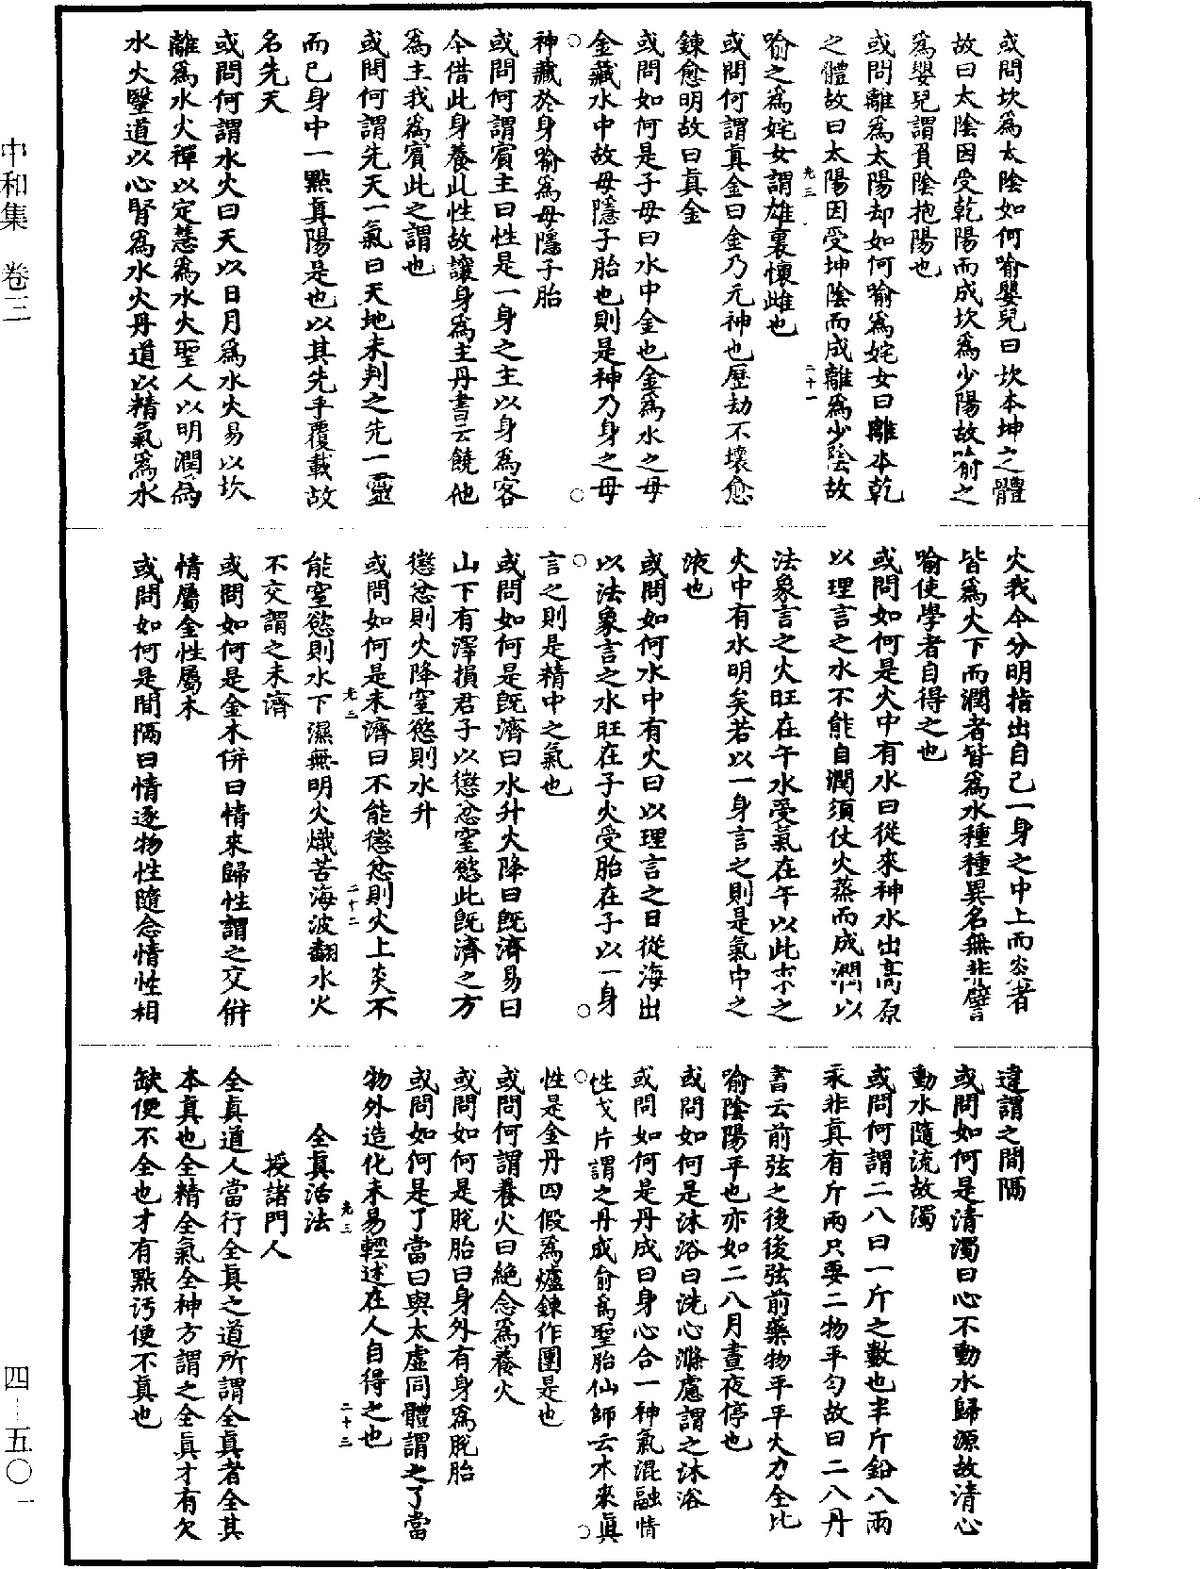 或問坎爲太陰如何喻嬰兒曰坎本坤之體
故曰太陰因受乾陽而成坎爲少陽故喻之
爲嬰兒謂負陰抱陽也
或問離爲太陽却如何喻爲姹女曰離本乾
之體故曰太陽因受坤陰而成離爲少陰故
光三
二十一
喻之爲姹女謂雄裏懷雌也
或問何謂眞金曰金乃元神也歷劫不壞愈
鍊愈明故曰眞金
或問如何是子母曰水中金也金爲水之母
金藏水中故母隱子胎也則是神乃身之母
神藏於身喻爲母隱子胎
或問何謂賓主曰性是一身之主以身爲客
今借此身養此性故讓身爲主丹書云饒他
爲主我爲賓此之謂也
或問何謂先天一氣曰天地未判之先一靈
而已身中一點眞陽是也以其先乎覆載故
名先天
或問何謂水火曰天以日月爲水火易以坎
離爲水火禪以定慧爲水火聖人以明潤爲
水火醫道以心腎爲水火丹道以精氣爲水
火我今分明指出自己一身之中上而炎者
皆爲火下而潤者皆爲水種種異名無非譬
喻使學者自得之也
或問如何是火中有水曰從來神水出高原
以理言之水不能自潤須仗火蒸而成潤以
法象言之火旺在午水受氣在午以此求之
火中有水明矣若以一身言之則是氣中之
液也
或問如何水中有火曰以理言之日從海出
以法象言之水旺在子火受胎在子以一身
言之則是精中之氣也
或問如何是旣濟曰水升火降曰旣濟易曰
山下有澤損君子以懲忿窒慾此旣濟之方
懲忿則火降窒慾則水升
或問如何是未濟曰不能懲忿則火上炎不
光三
二十二
能窒慾則水下濕無明火熾苦海波翻水火
不交謂之未濟
或問如何是金木併曰情來歸性謂之交併
情屬金性屬木
或問如何是間隔曰情逐物性隨念情性相
違謂之間隔
或問如何是清濁曰心不動水歸源故清心
動水隨流故濁
或問何謂二八曰一斤之數也半斤鉛八兩
汞非真有斤兩只要二物平勻故曰二八丹
書云前弦之後後弦前藥物平平火力全比
喻陰陽平也亦如二八月晝夜停也
或問如何是沐浴曰洗心滌慮謂之沐浴
或問如何是丹成曰身心合一神氣混融情
性成片謂之丹成喻爲聖胎仙師云本來眞
性是金丹四假爲爐鍊作團是也
或問何謂養火曰絕念爲養火
或問如何是脫胎曰身外有身爲脫胎
或問如何是了當曰與太虛同體謂之了當
物外造化未易輕述在人自得之也
光三
二十三
全真活法
授諸門人
全眞道人當行全眞之道所謂全眞者全其
本真也全精全氣全神方謂之全眞才有欠
缺便不全也才有點污便不眞也
中和集 卷三
四—五〇一